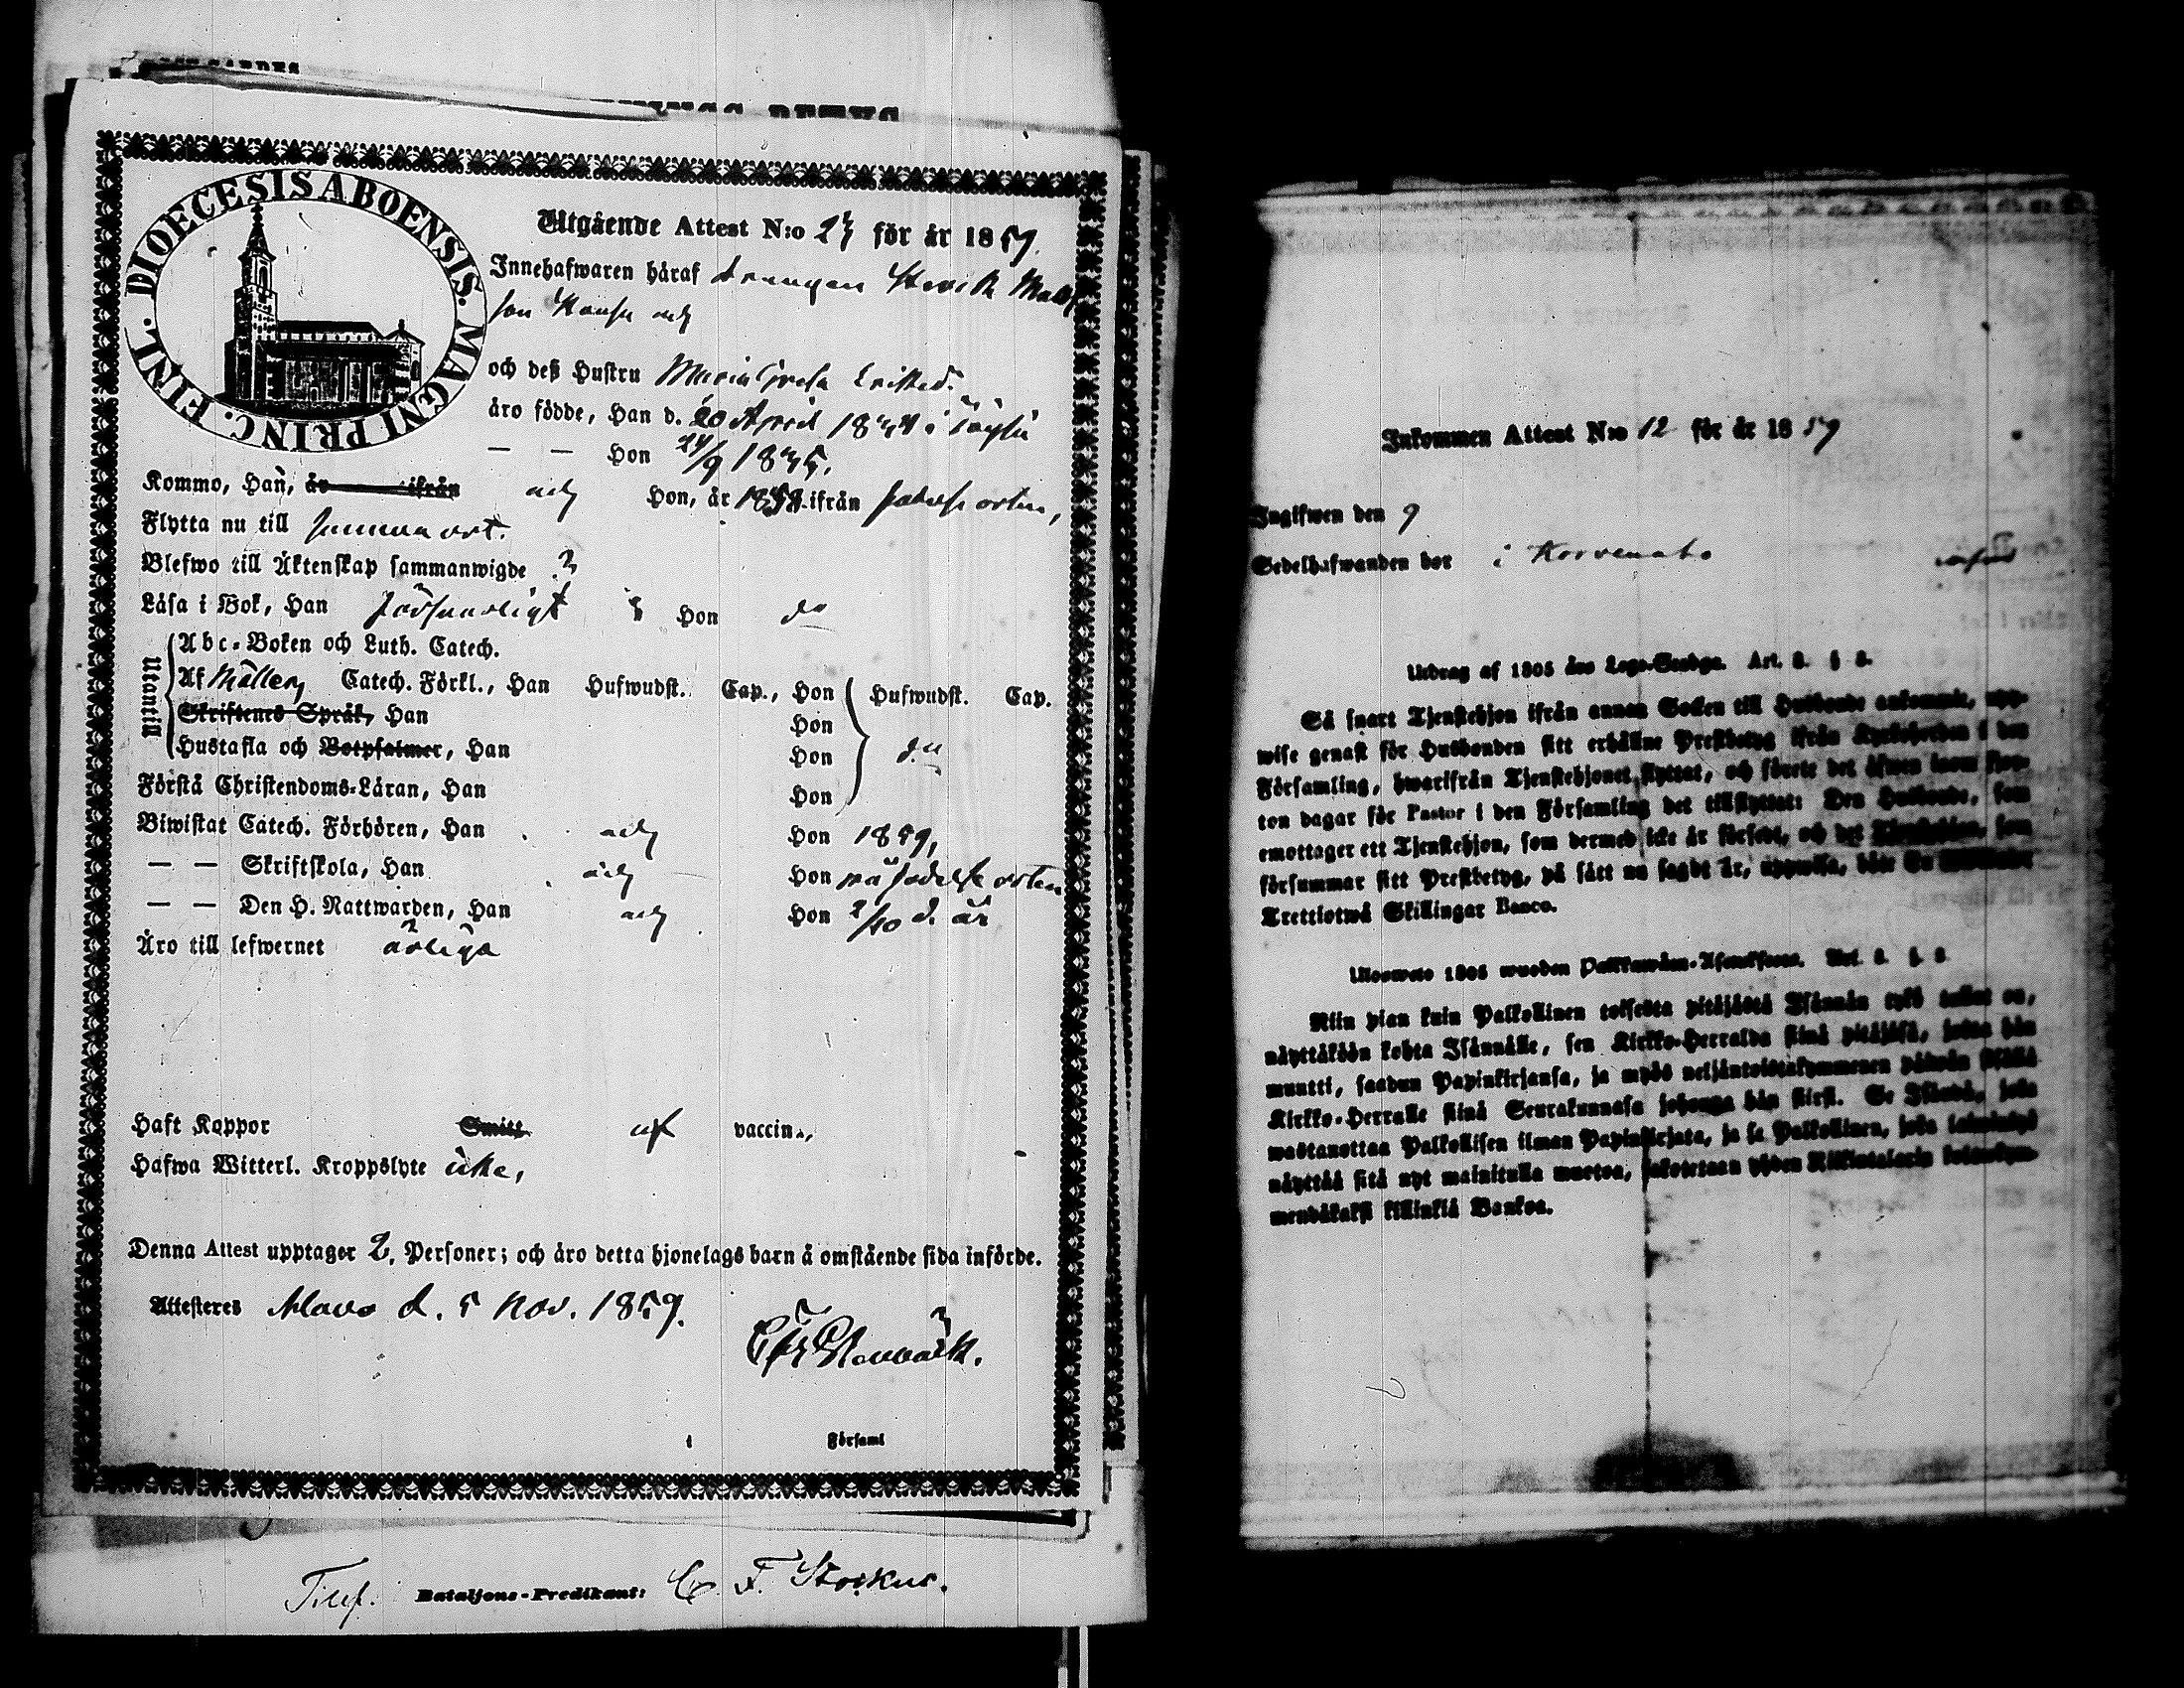 DIOECESIS ABOENSIS. MAGNI PRINC. FINL.
Utgående Attest N:o 23 för år 1859.
Innehafwaren häraf drängen Henrik Matts
son
och deß Hustru Maria Greta Eriksd.
äro födde, Han d. 20 April 1834 i Töysä
— — Hon 24/9 1835.
Kommo, Han, är ifrån Hon, år 1858 ifrån födelse orten,
Flytta nu till samma ort.
Blefwo till Äktenskap sammanwigde ?
Läsa i Bok, Han försvarligt Hon do
Utantill
Abc-Boken och Luth. Catech.
Af Möllers Catech. Förkl., Han Hufwudst. Cap., Hon Hufwudst. Cap.
Skriftenes Språk, Han Hon
Hustafla och Botpsalmer, Han Hon do
Förstå Christendoms-Läran, Han Hon
Biwistat Catech. Förhören, Han Hon 1859,
— — Skriftskola, Han Hon på födelse orten
— — Den H. Nattwarden, Han Hon 2/10 d. år
Äro till lefwernet ärliga
Haft Koppor Smitt af vaccin.,
Hafwa Witterl. Kroppslyte icke,
Denna Attest upptager 2, Personer; och äro detta hjonelags barn å omstående sida införde.
Attesteres Alavo d. 5 Nov. 1859.
i Församl
Bataljons-Predikant: C. F. Storkus.
Inkommen Attest N:o 12 för år 1859
Ingifwen den 9
Sedelhafwanden bor i
Utdrag af 1805 års Lego-Stadga. Art. 8. § 8.
Så snart Tjenstehjon ifrån annan Socken till Husbonde ankommit, upp-
wise genast för Husbonden sitt erhållne Prestbetyg ifrån Kyrkoherden i den
Församling, hwarifrån Tjenstehjonet flyttat, och förete det äfwen inom fjor-
ton dagar för Pastor i den Församling det tillflyttat: Den Husbonde, som
emottager ett Tjenstehjon, som dermed icke är försedt, och det Tjenstehjon, som
försummar sitt Prestbetyg, på sätt nu sagdt är, uppwisa, böte En Riksdaler
Trettiotwå Skillingar Banco.
Ulosweto 1805 wuoden Palkkawäen-Asetuksesta. Art. 8. §. 8.
Niin pian kuin Palkollinen toisesta pitäjästä Isännän tykö tullut on,
näyttäköön kohta Isännälle, sen Kirkko-Herralda siinä pitäjäsä, josta hän
muutti, saadun Papinkirjansa, ja myös neljäntoistakymmenen päiwän sisällä
Kirkko-Herralle siinä Seurakunnasa johonga hän siirsi. Se Isändä, joka
wastanottaa Palkollisen ilman Papinkirjata, ja se Palkollinen, joka laiminlyö
näyttää sitä nyt mainitulla muotoa, sakotetaan yhden Riikintalarin kolmekym-
mendäkaksi killinkiä Bankoa.